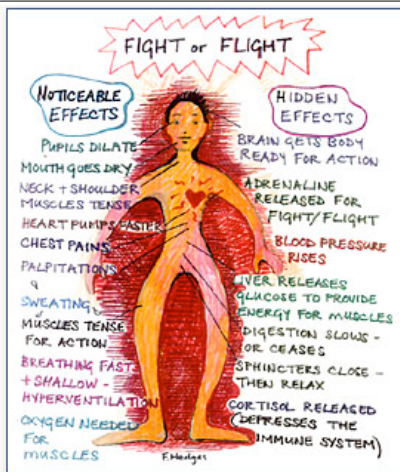 FIGHT or FLIGHT
NOTICEABLE
EFFECTS
PUPILS DILATE
MOUTH GOES DRY
NECK + SHOULDER
MUSCLES TENSE
HEART PUMPS FASTER
CHEST PAINS
PALPITATIONS
&
SWEATING
MUSCLES TENSE
FOR ACTION
BREATHING FAST
+ SHALLOW -
HYPERVENTILATION
OXYGEN NEEDED
FOR
MUSCLES
HIDDEN
EFFECTS
BRAIN GETS BODY
READY FOR ACTION
ADRENALINE
RELEASED FOR
FIGHT/FLIGHT
BLOOD PRESSURE
RISES
LIVER RELEASES
GLUCOSE TO PROVIDE
ENERGY FOR MUSCLES
DIGESTION SLOWS -
OR CEASES
SPHINCTERS CLOSE -
THEN RELAX
CORTISOL RELEASED
(DEPRESSES THE
IMMUNE SYSTEM)
F. Hedges